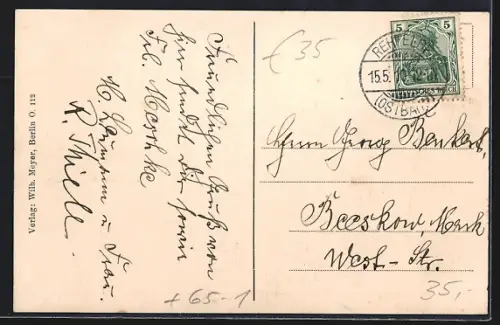 Verlag: Wilh. Meyer, Berlin O. 112
Freundlichen Gruß von
hier sendet dir sowie
Frl. Marthke
u Frau.
R. Thiele.
+65-1
€35
5 5
15.5.
(OSTBAHN)
Herrn Georg Benkert,
Beeskow, Mark
West-Str.
35,-